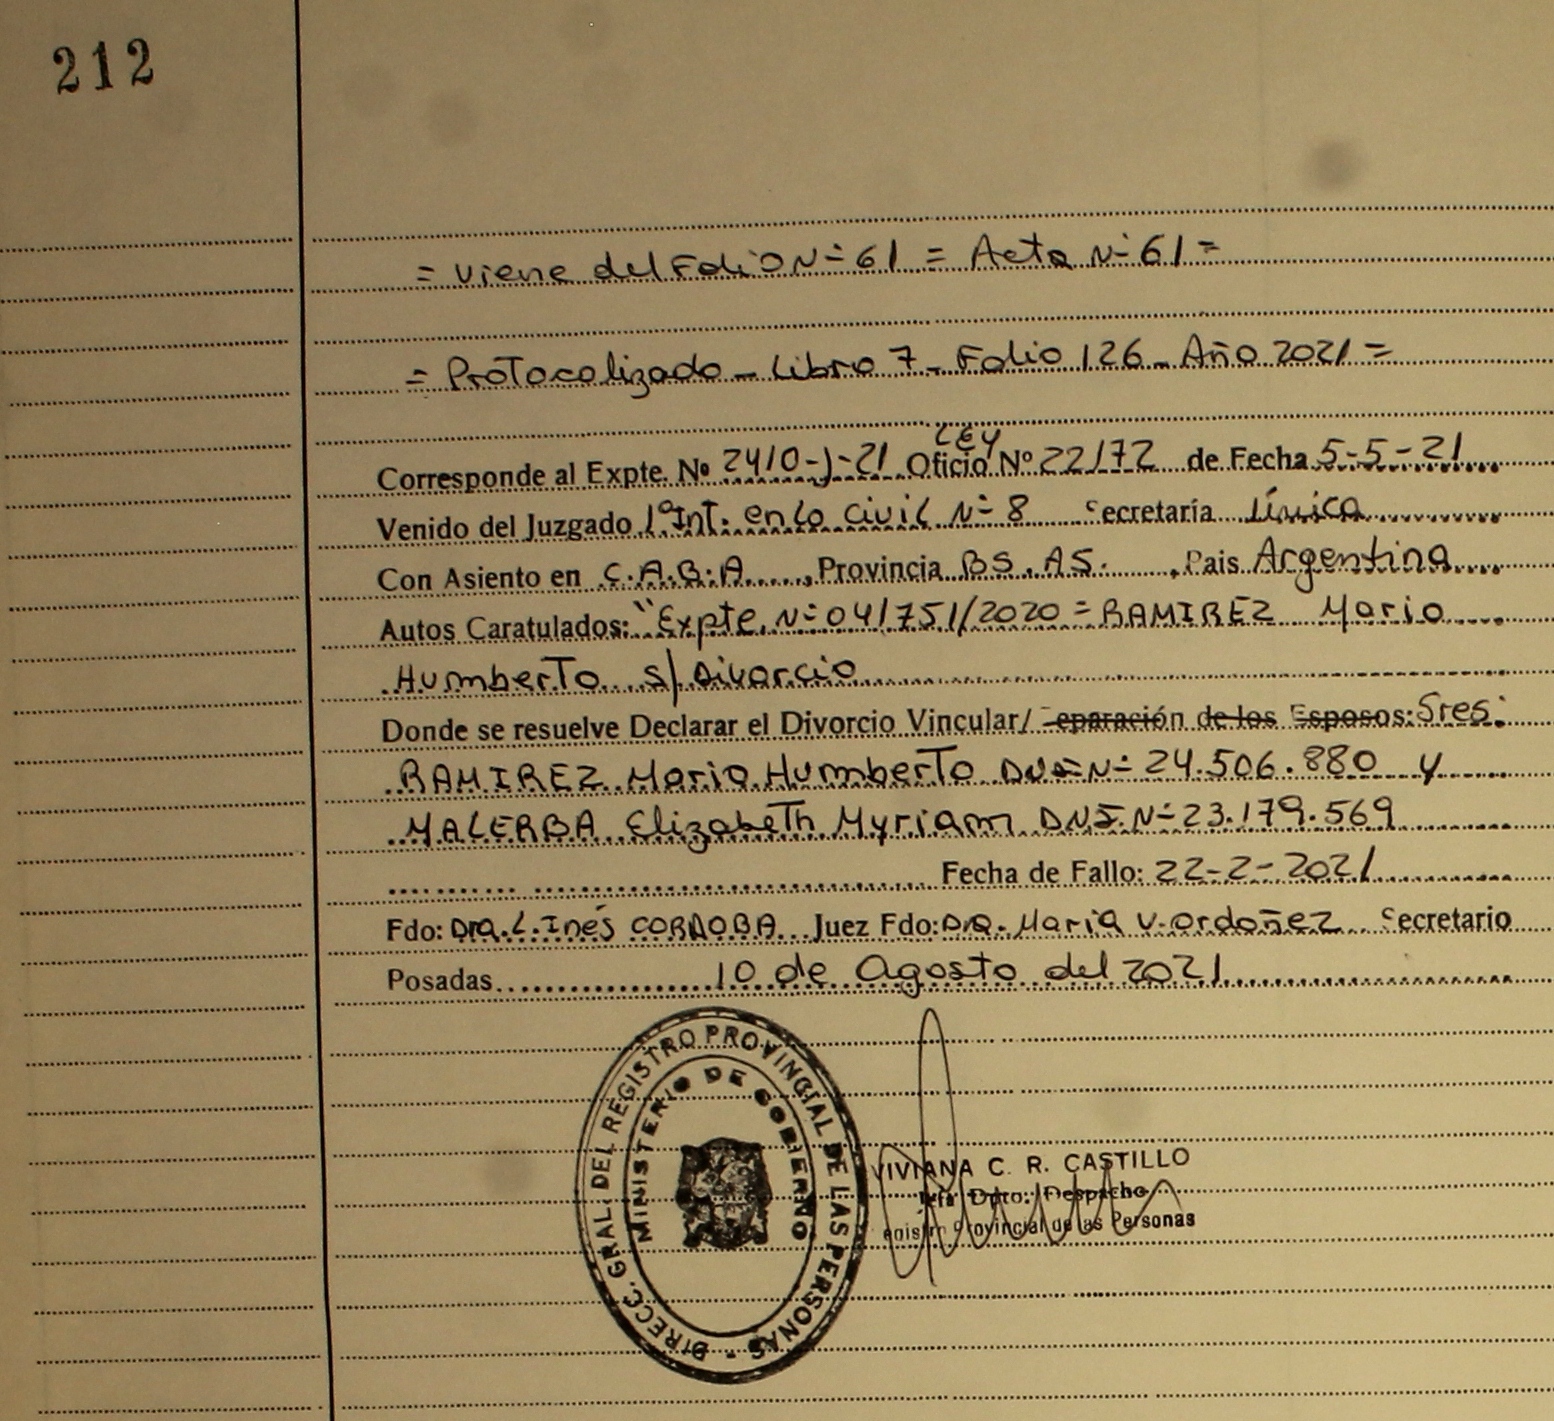 212
= Viene del Folio Nº 61 = Acta Nº 61 =
= Protocolizado - Libro 7 - Folio 126 - Año 2021 =
LEY
Corresponde al Expte. Nº 2410-J-21 Oficio Nº 22172 de Fecha 5-5-21
Venido del Juzgado 1º Int. en lo civil Nº 8 Secretaría Única
Con Asiento en C.A.B.A , Provincia BS. AS. , Pais Argentina
Autos Caratulados: "Expte. Nº 041751/2020 = RAMIREZ Mario
Humberto s/ Divorcio
Donde se resuelve Declarar el Divorcio Vincular/ Separación de los Esposos: Sres:
RAMIREZ Mario Humberto DNI Nº 24.506.880 y
MALERBA Elizabeth Myriam DNI Nº 23.179.569
Fecha de Fallo: 22-2-2021
Fdo: Dra. L. Inés CORDOBA Juez Fdo: Dra. Maria V. Ordoñez Secretario
Posadas 10 de Agosto del 2021
DIRECC. GRAL. DEL REGISTRO PROVINCIAL DE LAS PERSONAS -
MINISTERIO DE GOBIERNO
VIVIANA C. R. CASTILLO
Dpto. Despacho
Provincial de las Personas